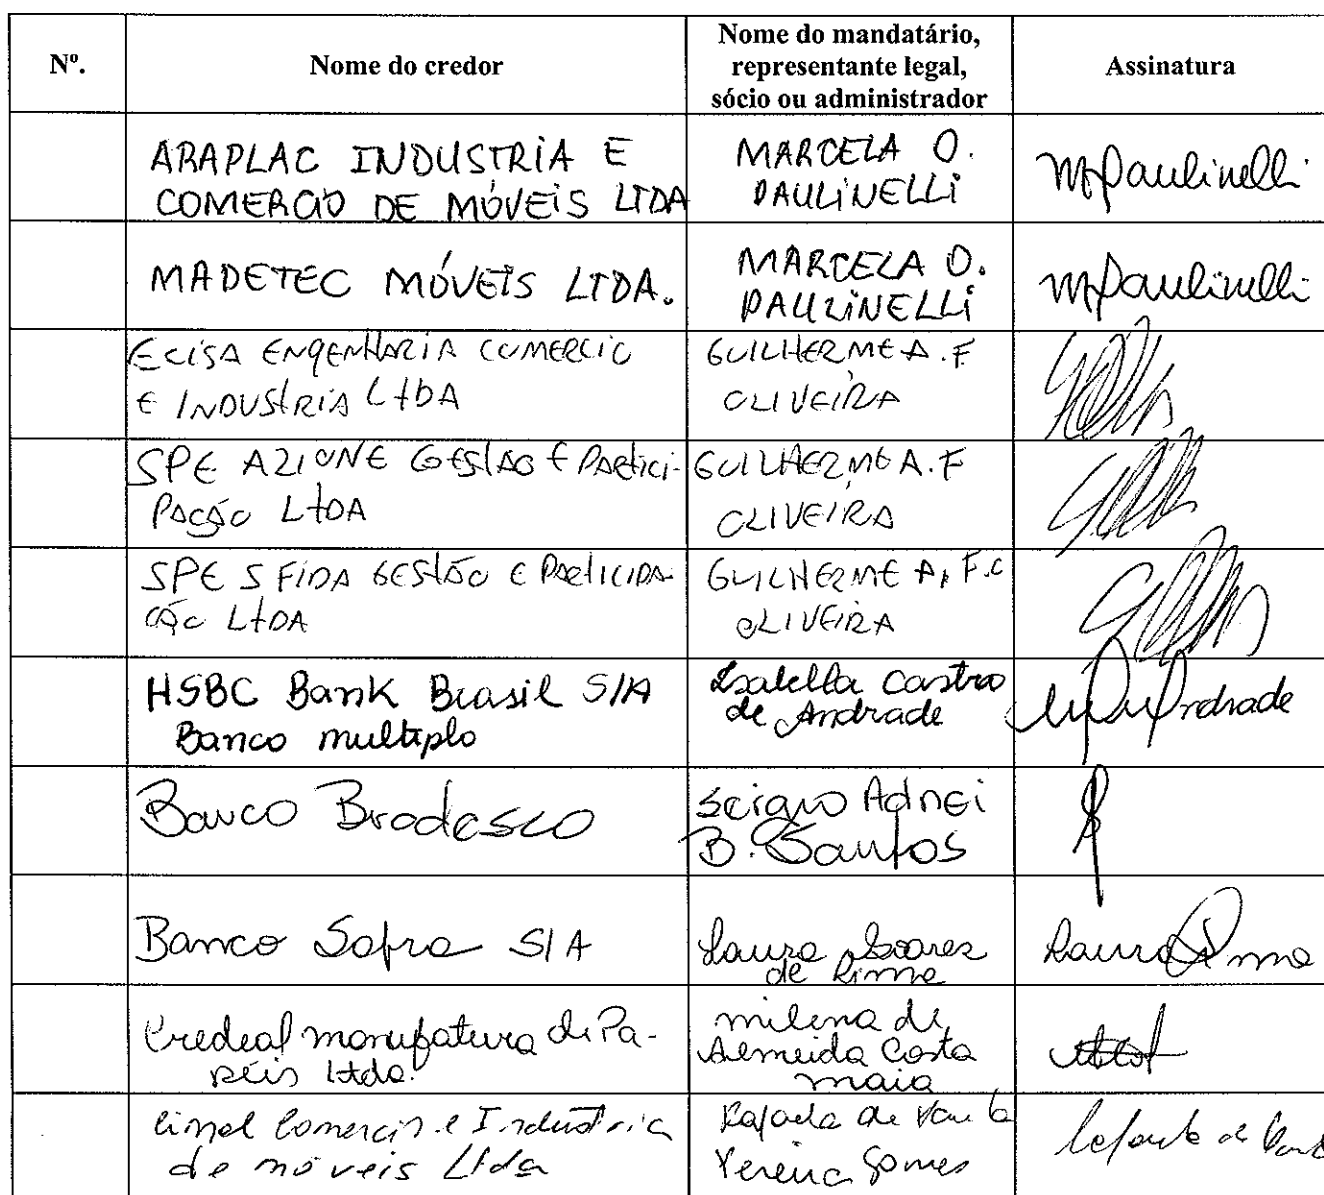 Nº.
Nome do credor
Nome do mandatário,
representante legal,
sócio ou administrador
Assinatura
ARAPLAC INDUSTRIA E
COMERCIO DE MÓVEIS LTDA
MARCELA O.
PAULINELLI
MPaulinelli
MADETEC MÓVEIS LTDA.
MARCELA O.
PAULINELLI
MPaulinelli
ECISA ENGENHARIA COMERCIO
E INDUSTRIA LtDA
GUILHERME A. F
OLIVEIRA
SPE AZIONE GESTÃO E PARTICI-
PAÇÃO LtDA
GUILHERME A. F
OLIVEIRA
SPE SFIDA GESTÃO E PARTICIPA-
ÇÃO LtDA
GUILHERME A. F. C
OLIVEIRA
HSBC Bank Brasil S/A
Banco multiplo
Isabella Castro
de Andrade
Andrade
Banco Bradesco
Sergio Adnei
B. Santos
Banco Safra S/A
Laura Soares
de Lima
Laura Lima
Credeal manufatura de Pa-
péis Ltda.
milena de
Almeida Costa
maia
Comercio e Indústria
de móveis Ltda
Rafaela de Paula
Pereira Gomes